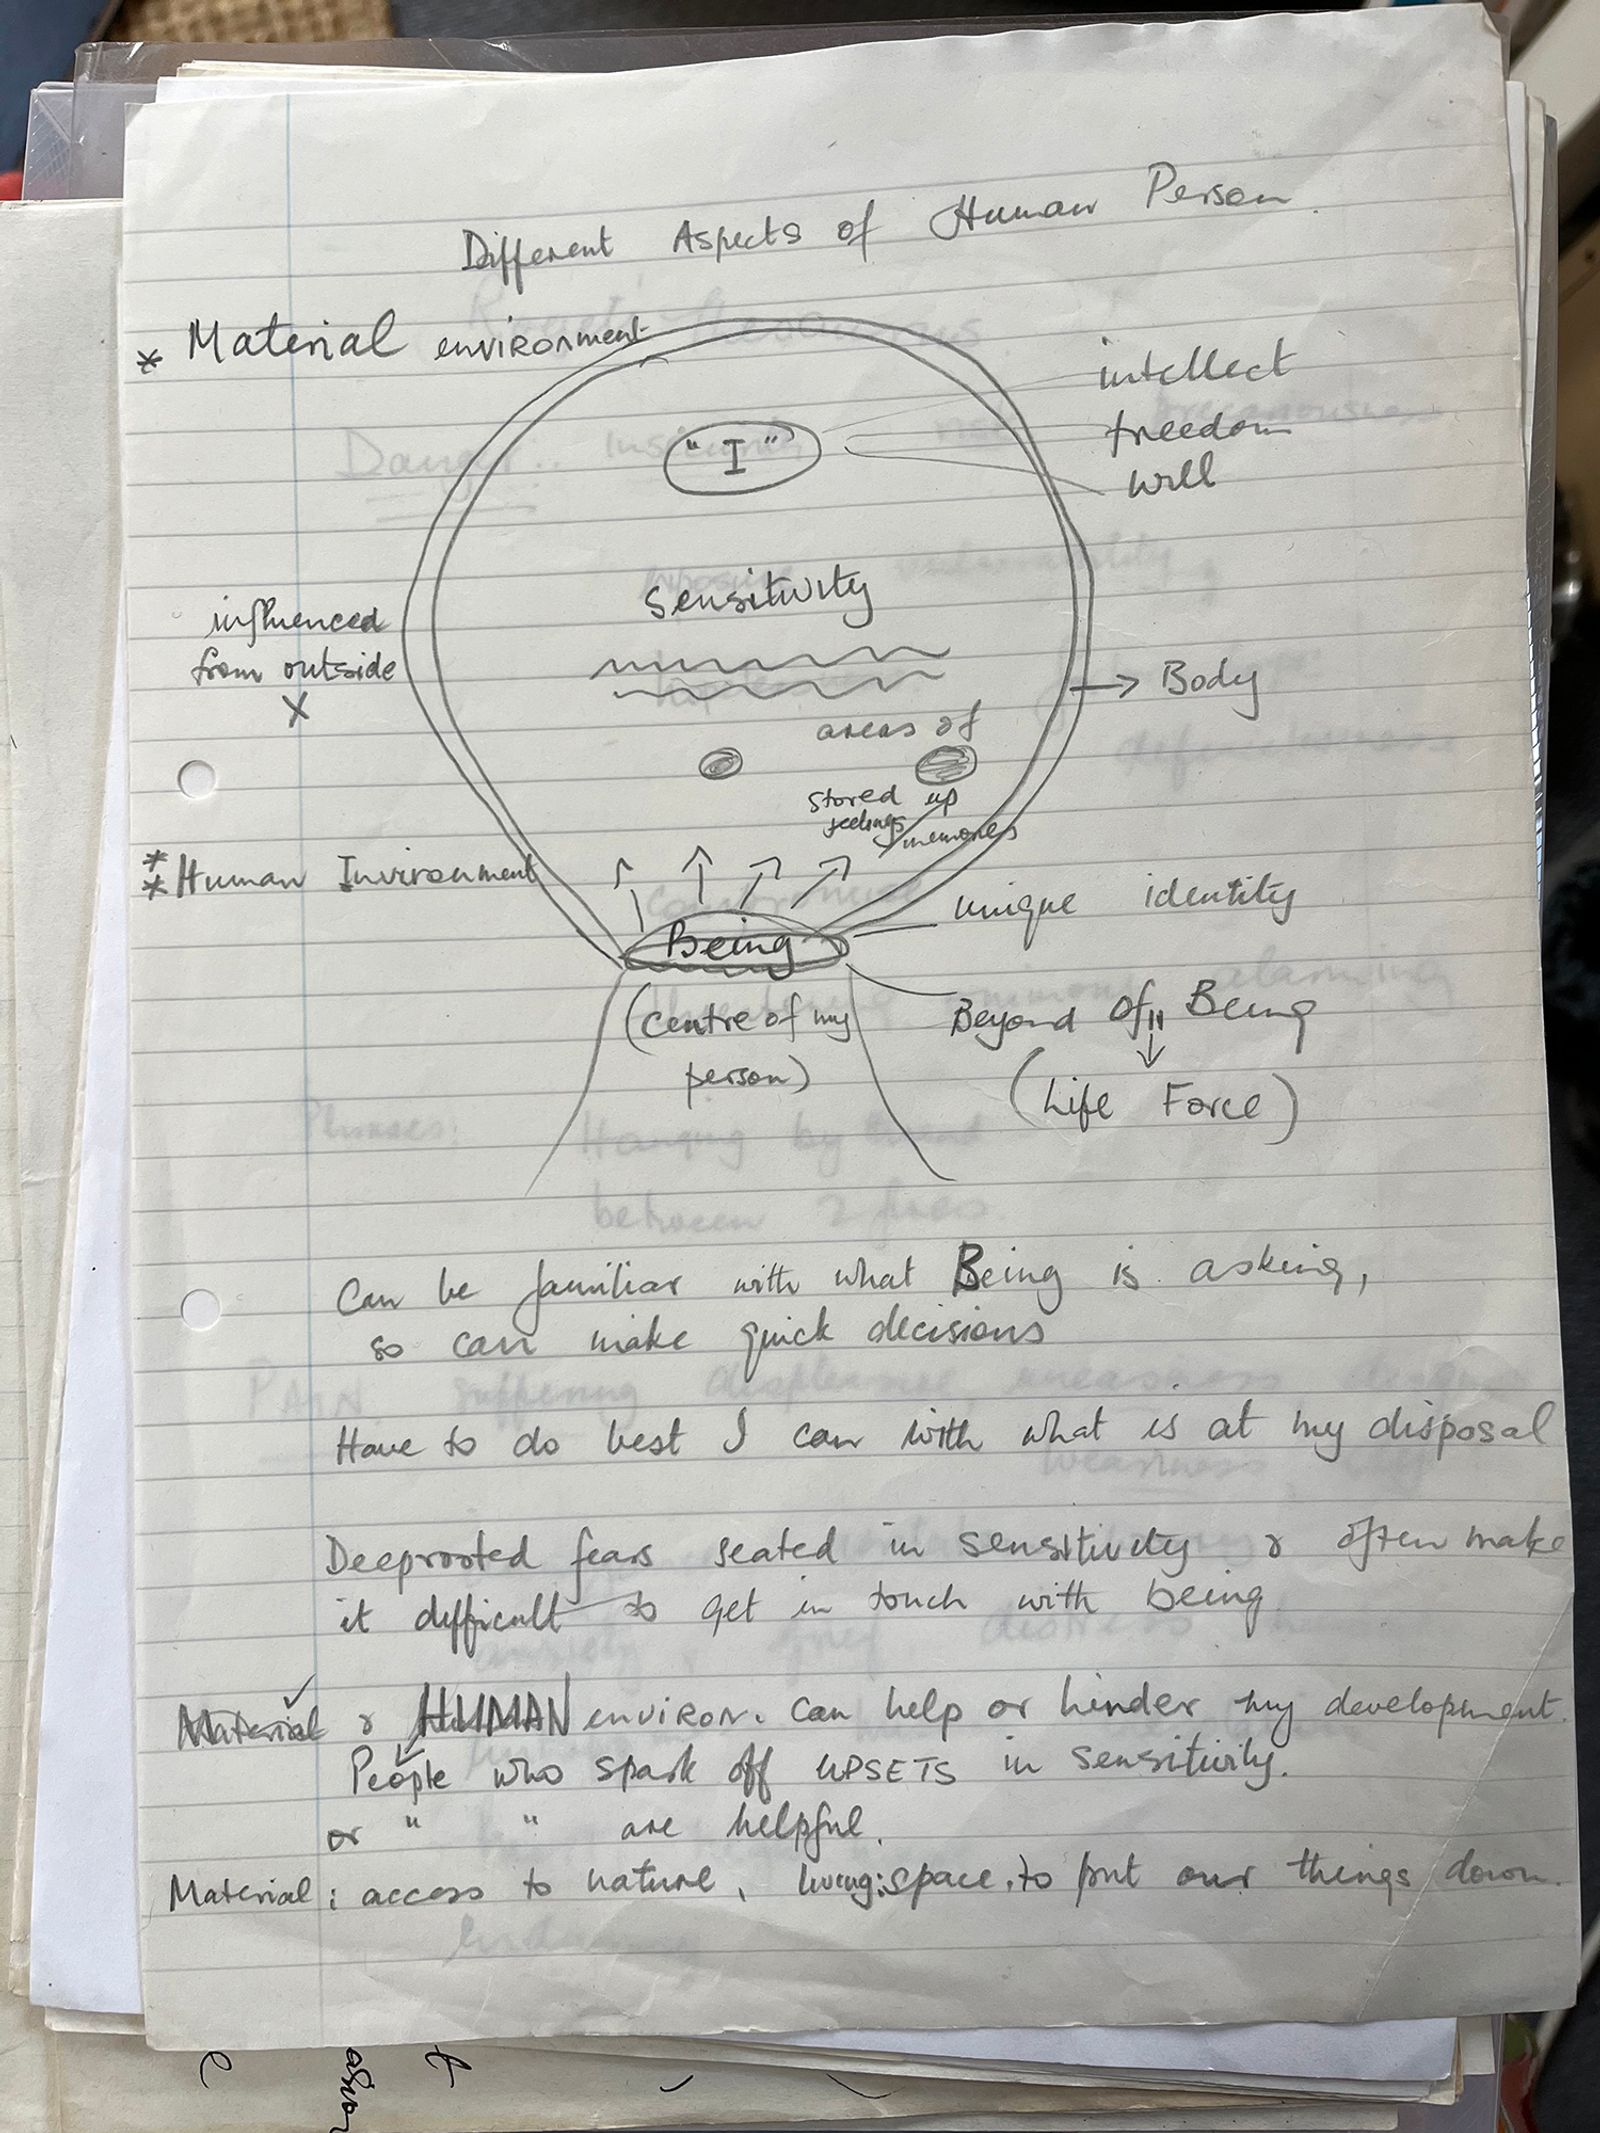 Different Aspects of Human Person.
* Material environment
intellect
freedom
will
"I"
sensitivity
influenced
from outside
X
Body
areas of
stored up
feelings
memories
** Human Invironment
Being
unique identity
(centre of my
person)
Beyond of " Being
(Life Force)
Can be familiar with what Being is asking,
so can make quick decisions
Have to do best I can with what is at my disposal
Deeprooted fears seated in sensitivity & often make
it difficult to get in touch with being
Material & HUMAN environ. can help or hinder my development.
People who spark off UPSETS in sensitivity.
or " " are helpful.
Material: access to nature, living: space. to put our things down.